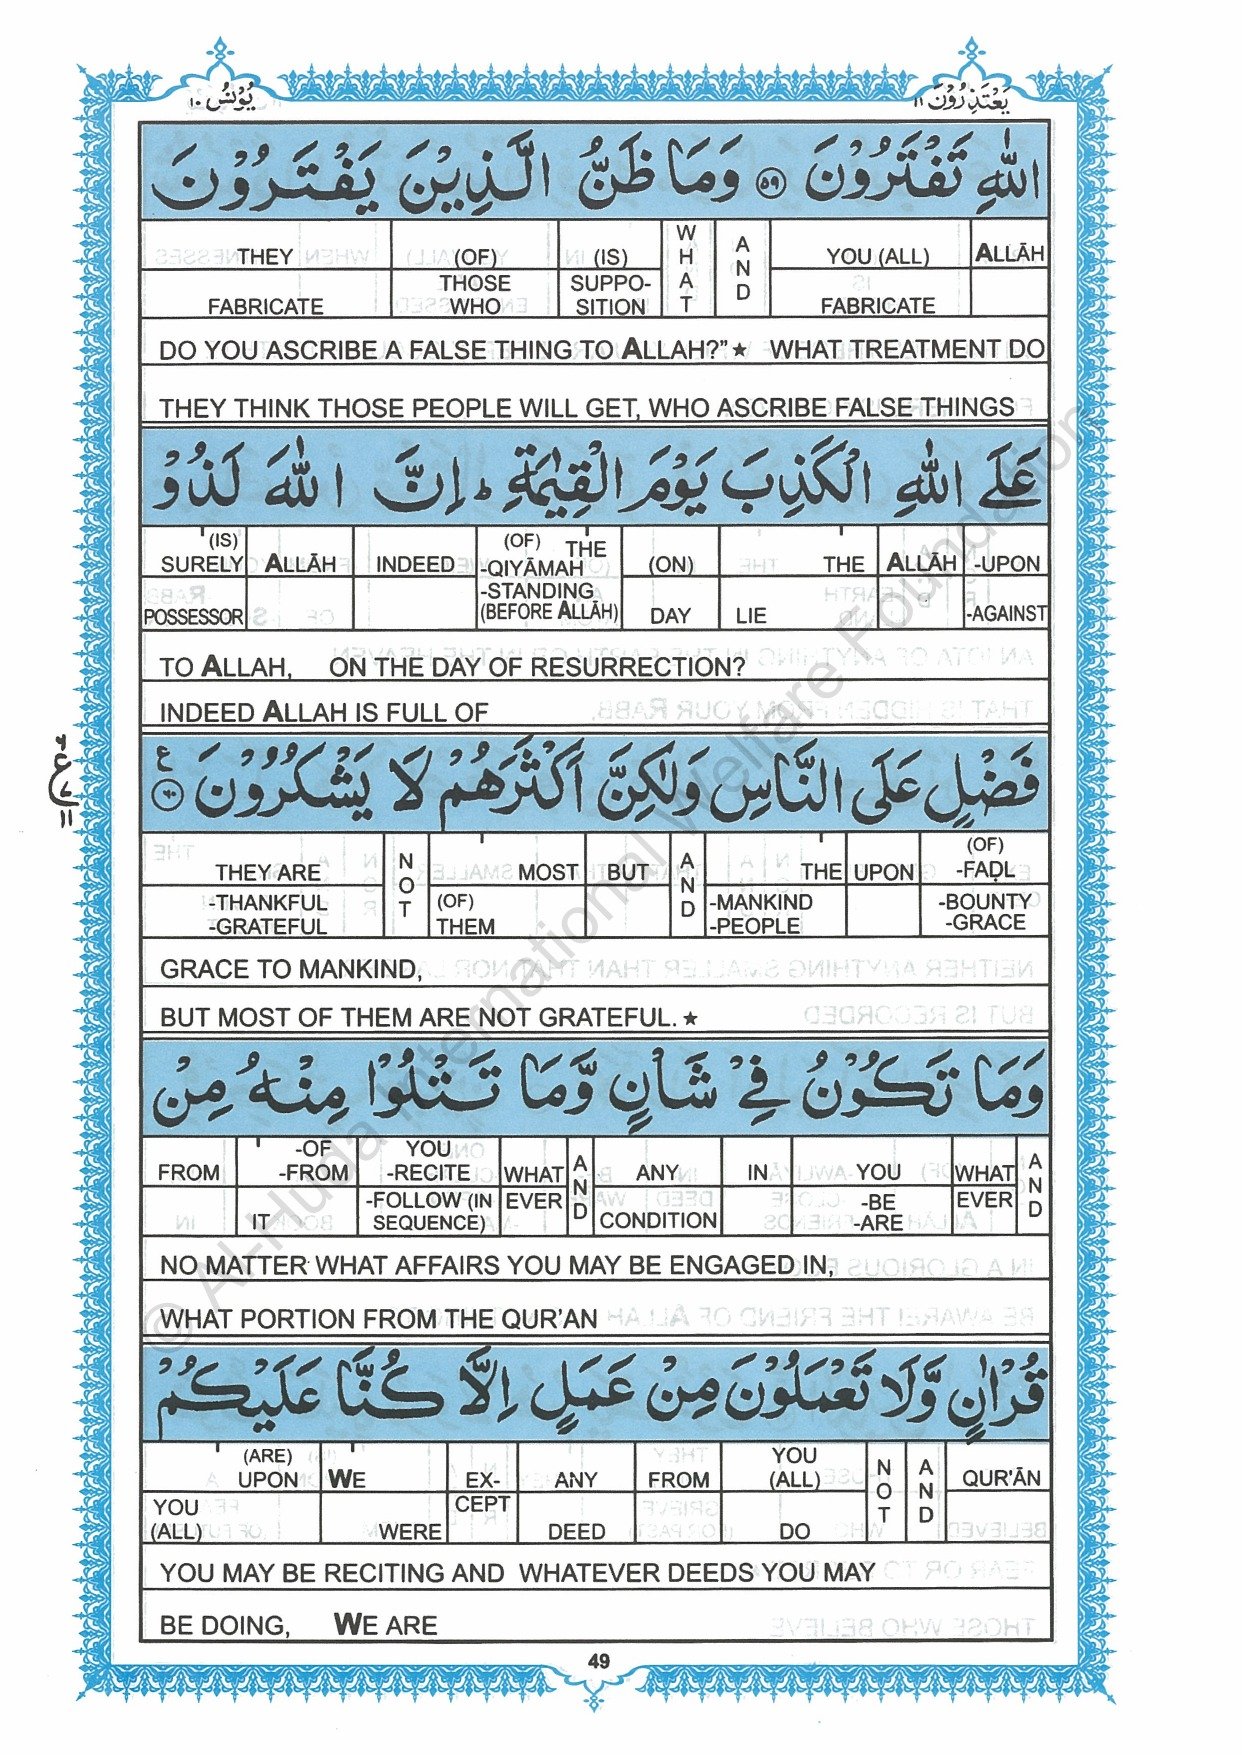 يَعْتَذِرُوْنَ ١١
يُوْنُسُ ١٠
اللّٰهِ تَفْتَرُوْنَ ﴿٥٩﴾ وَمَا ظَنُّ الَّذِيْنَ يَفْتَرُوْنَ
THEY (OF) (IS) WHAT AND YOU (ALL) ALLĀH
FABRICATE THOSE WHO SUPPO-SITION FABRICATE
DO YOU ASCRIBE A FALSE THING TO ALLAH?”★ WHAT TREATMENT DO
THEY THINK THOSE PEOPLE WILL GET, WHO ASCRIBE FALSE THINGS
عَلَى اللّٰهِ الْكَذِبَ يَوْمَ الْقِيٰمَةِ ؕ اِنَّ اللّٰهَ لَذُوْ
(IS) SURELY ALLĀH INDEED (OF) THE -QIYĀMAH (ON) THE ALLĀH -UPON
POSSESSOR -STANDING (BEFORE ALLĀH) DAY LIE -AGAINST
TO ALLAH, ON THE DAY OF RESURRECTION?
INDEED ALLAH IS FULL OF
فَضْلٍ عَلَى النَّاسِ وَلٰكِنَّ اَكْثَرَهُمْ لَا يَشْكُرُوْنَ ﴿٦٠﴾ ع
٦
ع
٧
١١
THEY ARE NOT MOST BUT AND THE UPON (OF) -FAḌL
-THANKFUL -GRATEFUL (OF) THEM -MANKIND -PEOPLE -BOUNTY -GRACE
GRACE TO MANKIND,
BUT MOST OF THEM ARE NOT GRATEFUL.★
وَمَا تَكُوْنُ فِيْ شَاْنٍ وَّمَا تَتْلُوْا مِنْهُ مِنْ
FROM -OF -FROM YOU -RECITE WHAT AND ANY IN YOU WHAT AND
IT -FOLLOW (IN SEQUENCE) EVER CONDITION -BE -ARE EVER
NO MATTER WHAT AFFAIRS YOU MAY BE ENGAGED IN,
WHAT PORTION FROM THE QUR’AN
قُرْاٰنٍ وَّلَا تَعْمَلُوْنَ مِنْ عَمَلٍ اِلَّا كُنَّا عَلَيْكُمْ
(ARE) UPON WE EX- ANY FROM YOU (ALL) NOT AND QUR’ĀN
YOU (ALL) WERE CEPT DEED DO
YOU MAY BE RECITING AND WHATEVER DEEDS YOU MAY
BE DOING, WE ARE
49
© Al-Huda International Welfare Foundation